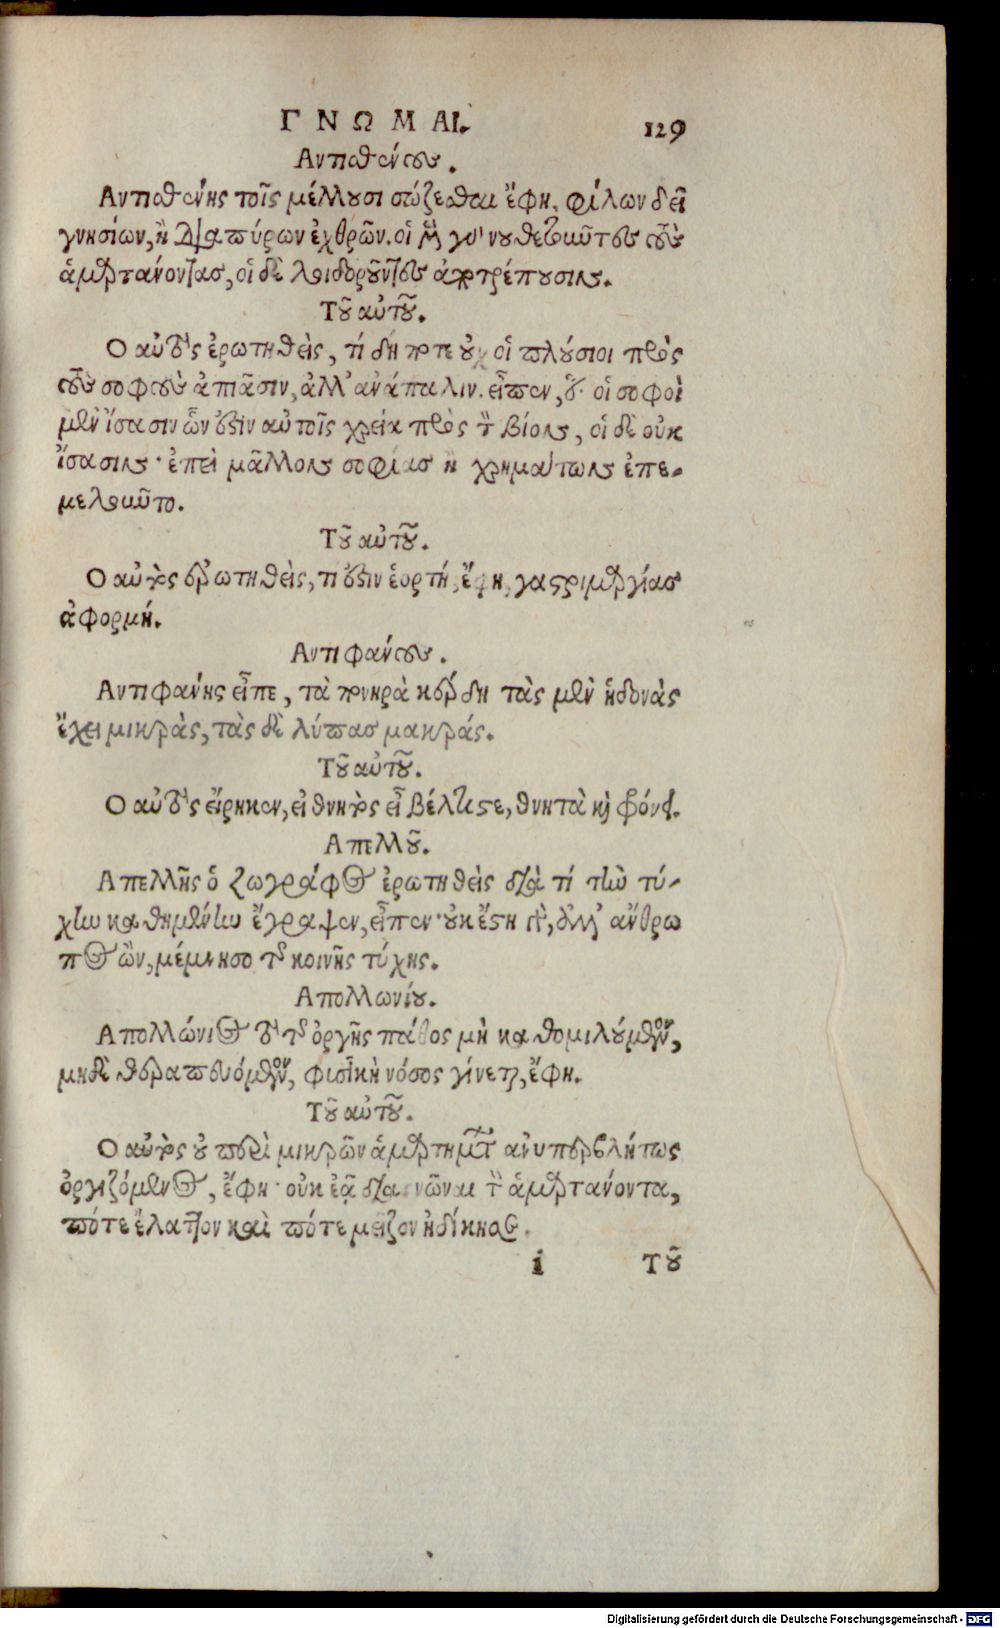 ΓΝΩΜΑΙ. 129
Αντισθένους.
Αντισθένης τοῖς μέλλουσι σώζεσθαι ἔφη, φίλων δεῖ
γνησίων, ἢ διαπύρων ἐχθρῶν. οἱ μὲν γὰρ νουθετοῦντες τοὺς
ἁμαρτάνοντας, οἱ δὲ λοιδοροῦντες ἀποτρέπουσιν.
Τοῦ αὐτοῦ.
Ο αὐτὸς ἐρωτηθεὶς, τί δή ποτε οὐχ οἱ πλούσιοι πρὸς
τοὺς σοφοὺς ἀπιᾶσιν, ἀλλ' ἀνάπαλιν. εἶπεν, ὅτι οἱ σοφοὶ
μὲν ἴσασιν ὧν ἐστιν αὐτοῖς χρεία πρὸς τὸν βίον, οἱ δὲ οὐκ
ἴσασιν· ἐπεὶ μᾶλλον σοφίας ἢ χρημάτων ἐπε-
μελοῦντο.
Τοῦ αὐτοῦ.
Ο αὐτὸς ἐρωτηθεὶς, τί ἐστιν ἑορτή, ἔφη, γαστριμαργίας
ἀφορμή.
Αντιφάνους.
Αντιφάνης εἶπε, τὰ πονηρὰ κέρδη τὰς μὲν ἡδονὰς
ἔχει μικρὰς, τὰς δὲ λύπας μακράς.
Τοῦ αὐτοῦ.
Ο αὐτὸς εἴρηκεν, εἰ θνητὸς εἶ βέλτιστε, θνητὰ καὶ φρόνει.
Απελλοῦ.
Απελλῆς ὁ ζωγράφος ἐρωτηθεὶς διὰ τί τὴν τύ-
χην καθημένην ἔγραψεν, εἶπεν· οὐκ ἔστη γὰρ,
ἄνθρω
πος ὢν, μέμνησο τῆς κοινῆς τύχης.
Απολλωνίου.
Απολλώνιος τὸ τῆς ὀργῆς πάθος μὴ καθομιλούμενον,
μηδὲ θεραπευόμενον, φυσικὴ νόσος γίνεται, ἔφη.
Τοῦ αὐτοῦ.
Ο αὐτὸς ὁ περὶ μικρῶν ἁμαρτημάτων ἀνυπερβλήτως
ὀργιζόμενος, ἔφη· οὐκ ἐᾷ διαγνῶναι τὸν ἁμαρτάνοντα,
πότε ἔλαττον καὶ πότε μεῖζον ἠδίκησε.
i Τοῦ
Digitalisierung gefördert durch die Deutsche Forschungsgemeinschaft - DFG